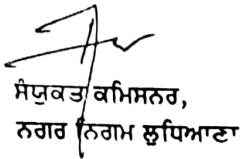 ਸੰਯੁਕਤ ਕਮਿਸਨਰ,
ਨਗਰ ਨਿਗਮ ਲੁਧਿਆਣਾ